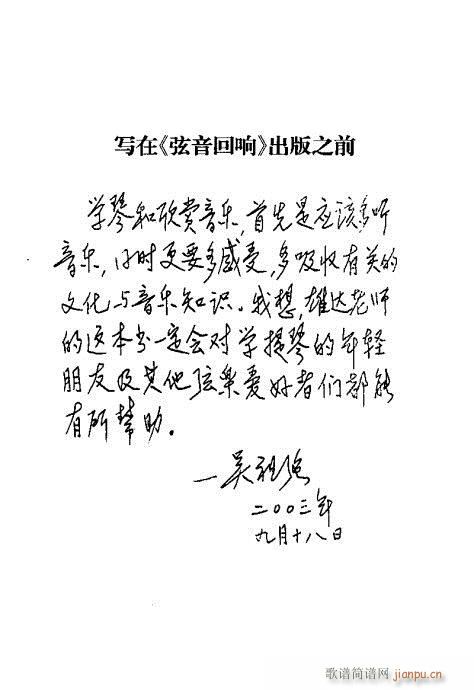 写在《弦音回响》出版之前
学琴和欣赏音乐,首先是应该多听
音乐,同时更要多感受,多吸收有关的
文化与音乐知识。我想,雄达老师
的这本书一定会对学提琴的年轻
朋友及其他弦乐爱好者们都能
有所帮助。
—吴祖强
二〇〇三年
九月十八日
歌谱简谱网
jianpu.cn